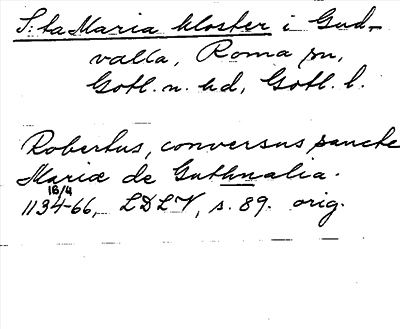 S:ta Maria kloster i Gud-
valla, Roma sn,
Gotl. n. hd, Gotl. l.
Robertus, conversus sancte
Mariæ de Guthnalia.
18/4
1134-66, LDLV, s. 89. orig.